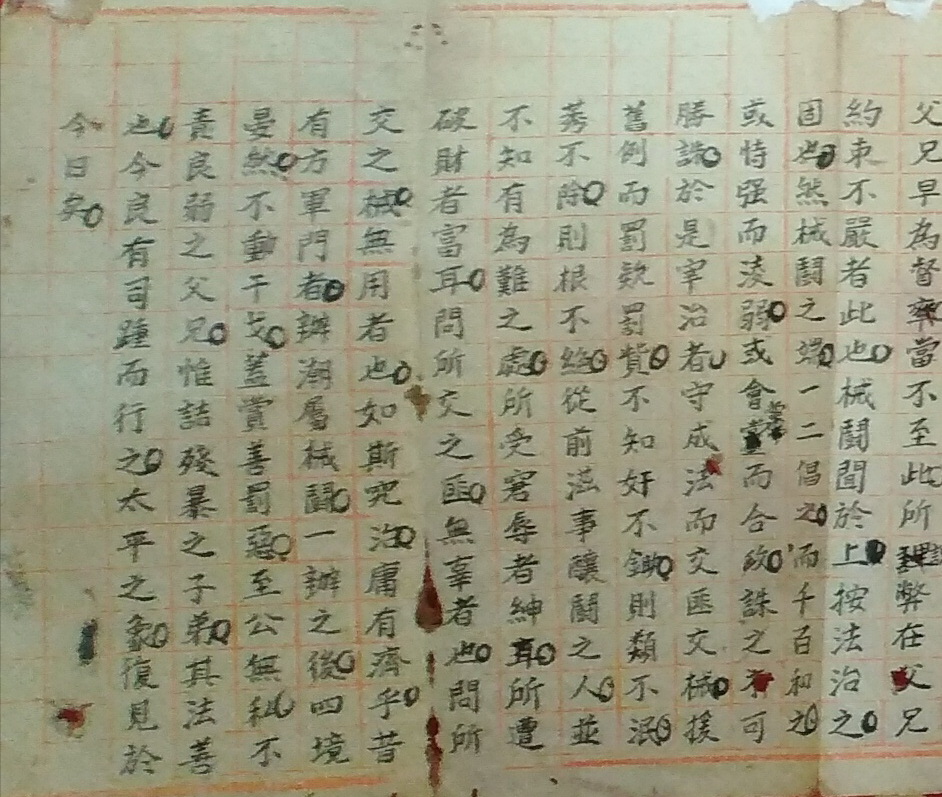 父兄早為督率當不至此所謂弊在父兄
約束不嚴者此也械鬪聞於上按法治之
固也然械鬪之端一二倡之而千百和之
或恃强而淩弱或會營而合攻誅之不可
勝誅於是宰治者守成法而交匪交械援
舊例而罰欵罰貲不知奸不鋤則類不泯
莠不除則根不絕從前滋事釀鬪之人並
不知有為難之處所受窘辱者紳耳所遭
破財者富耳問所交之匪無辜者也問所
交之械無用者也如斯究治庸有濟乎昔
有方軍門者辦潮屬械鬪一辦之後四境
晏然不動干戈蓋賞善罰惡至公無私不
責良弱之父兄惟詰殘暴之子弟其法善
也今良有司踵而行之太平之象復見於
今日矣